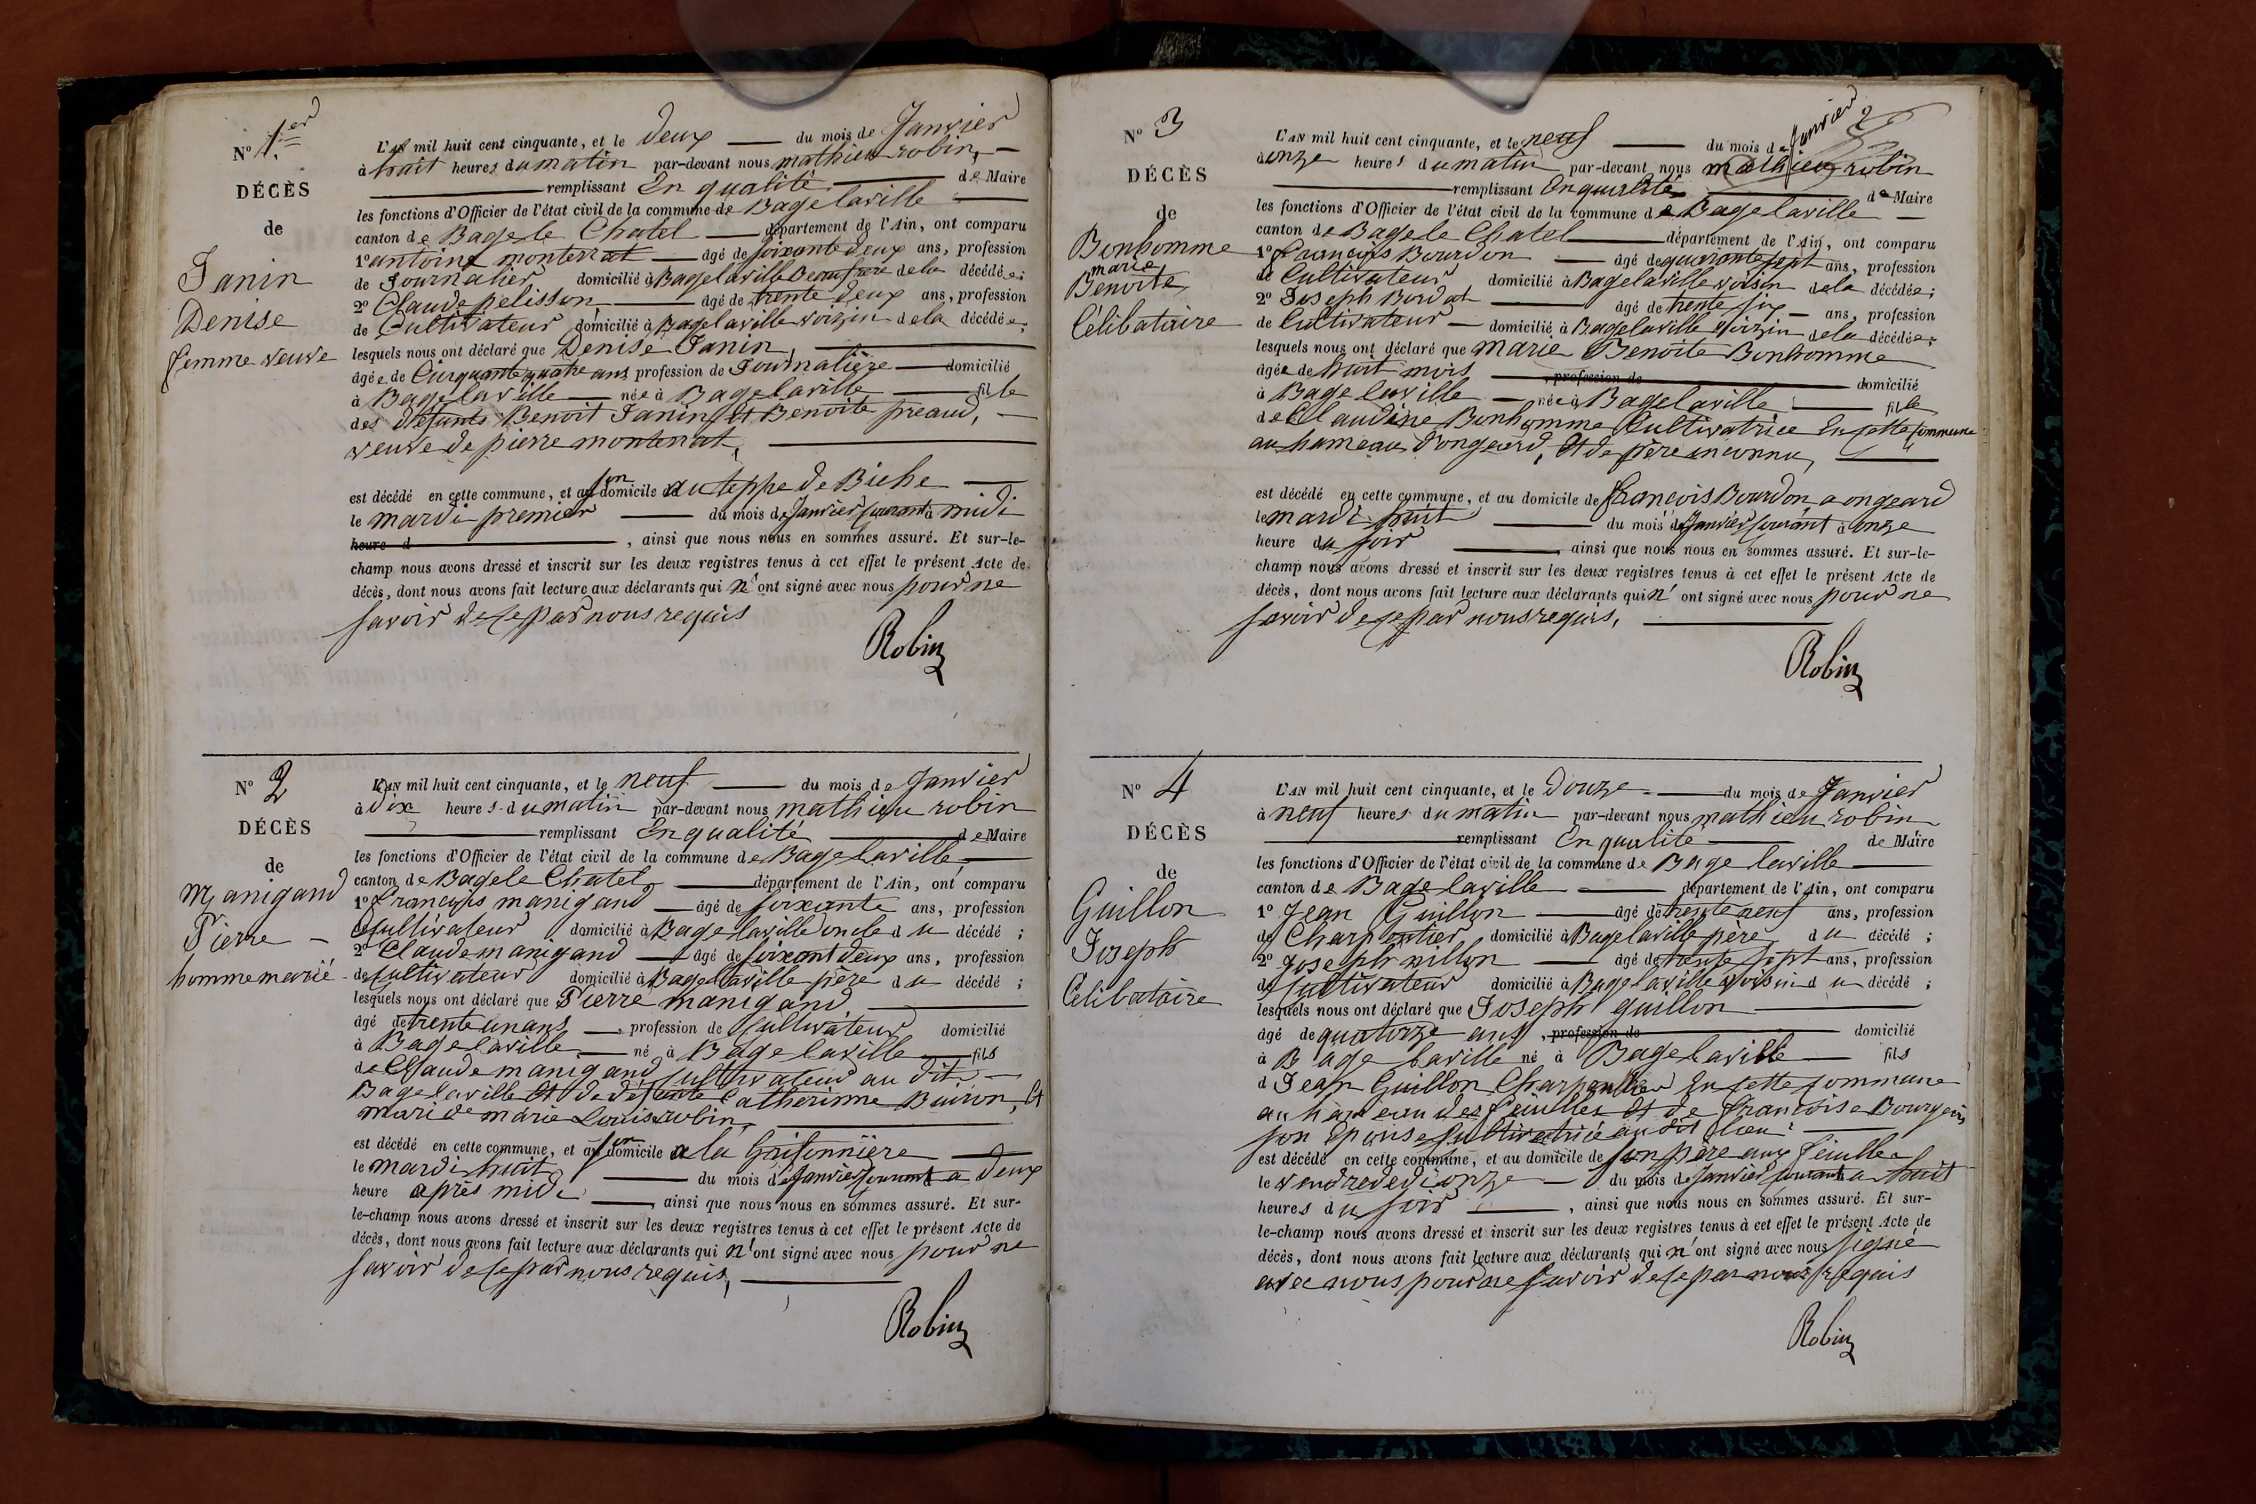 N° 1.er
DÉCÈS
de
Janin
Denise
femme veuve
L'AN mil huit cent cinquante, et le deux du mois de Janvier
à huit heures du matin par-devant nous mathieu robin,
remplissant En qualité de Maire
les fonctions d'Officier de l'état civil de la commune de Bagelaville
canton de Bagele Chatel département de l'Ain, ont comparu
1° antoine montenat âgé de soixante deux ans, profession
de Journalier domicilié à Bagelaville Beaufrere de la décédée;
2° Claude pelisson âgé de trente deux ans, profession
de Cultivateur domicilié à Bagelaville voizin de la décédée;
lesquels nous ont déclaré que Denise Janin,
âgée de Cinquante quatre ans profession de Journalière domicilié
à Bagelaville née à Bagelaville fille
des défunts Benoit Janin Et Benoite preaud,
veuve de pierre montenat,
est décédé en cette commune, et au son domicile au teppe de Biche
le mardi premier du mois de Janvier Courant à midi
heure d , ainsi que nous nous en sommes assuré. Et sur-le-
champ nous avons dressé et inscrit sur les deux registres tenus à cet effet le présent Acte de
décès, dont nous avons fait lecture aux déclarants qui n'ont signé avec nous pour ne
savoir de ce par nous requis
Robin
N° 2
DÉCÈS
de
Manigand
Pierre
homme marié
L'AN mil huit cent cinquante, et le neuf du mois de Janvier
à dix heures du matin par-devant nous mathieu robin
remplissant En qualité de Maire
les fonctions d'Officier de l'état civil de la commune de Bagelaville
canton de Bagele Chatel département de l'Ain, ont comparu
1° François manigand âgé de soixante ans, profession
Cultivateur domicilié à Bagelaville oncle du décédé;
2° Claude manigand âgé de soixant deux ans, profession
de Cultivateur domicilié à Bagelaville père du décédé;
lesquels nous ont déclaré que Pierre manigand
âgé de trente un ans, profession de Cultivateur domicilié
à Bagelaville, né à Bagelaville fils
de Claude manigand Cultivateur au dit
Bagelaville Et de défunte Catherinne Buiron, Et
mari de marie Louis robin,
est décédé en cette commune, et au son domicile a la Grifonnière
le mardi huit du mois de Janvier Courant à deux
heure après midi ainsi que nous nous en sommes assuré. Et sur-
le-champ nous avons dressé et inscrit sur les deux registres tenus à cet effet le présent Acte de
décès, dont nous avons fait lecture aux déclarants qui n'ont signé avec nous pour ne
savoir de ce par nous requis,
Robin
N° 3
DÉCÈS
de
Bonhomme
marie
Benoite
Célibataire
L'AN mil huit cent cinquante, et le neuf du mois de Janvier
à onze heures du matin par-devant nous mathieu robin
remplissant En qualité de Maire
les fonctions d'Officier de l'état civil de la commune de Bagelaville
canton de Bagele Chatel département de l'Ain, ont comparu
1° François Bourdon âgé de quarante sept ans, profession
de Cultivateur domicilié à Bagelaville voisin de la décédée;
2° Joseph Bordat âgé de trente six ans, profession
de Cultivateur domicilié à Bagelaville voizin de la décédée;
lesquels nous ont déclaré que marie Benoite Bonhomme
âgée de huit mois profession de domicilié
à Bagelaville née à Bagelaville fille
de Claudine Bonhomme Cultivatrice En cette Commune
au hameau d'ongeard, Et de père inconnu,
est décédé en cette commune, et au domicile de françois Bourdon, a ongeard
le mardi huit du mois de Janvier Courant à onze
heure du soir ainsi que nous nous en sommes assuré. Et sur-le-
champ nous avons dressé et inscrit sur les deux registres tenus à cet effet le présent Acte de
décès, dont nous avons fait lecture aux déclarants qui n'ont signé avec nous pour ne
savoir de ce par nous requis,
Robin
N° 4
DÉCÈS
de
Guillon
Joseph
Célibataire
L'AN mil huit cent cinquante, et le Douze du mois de Janvier
à neuf heures du matin par-devant nous mathieu robin
remplissant En qualité de Maire
les fonctions d'Officier de l'état civil de la commune de Bagelaville
canton de Bagelaville département de l'Ain, ont comparu
1° Jean Guillon âgé de trente neuf ans, profession
de Charpentier domicilié à Bagelaville père du décédé;
2° Joseph nillon âgé de trente sept ans, profession
de Cultivateur domicilié à Bagelaville voisin du décédé;
lesquels nous ont déclaré que Joseph guillon
âgé de quatorze ans, profession de domicilié
à Bagelaville né à Bagelaville fils
d Jean Guillon Charpentier En cette Commune
au hameau des feuilles Et de Françoise Bourgeois
son Epouse Cultivatrice au dit lieu
est décédé en cette commune, et au domicile de son père aux feuilles
le vendredi onze du mois de Janvier Courant à huit
heures du soir , ainsi que nous nous en sommes assuré. Et sur-
le-champ nous avons dressé et inscrit sur les deux registres tenus à cet effet le présent Acte de
décès, dont nous avons fait lecture aux déclarants qui n'ont signé avec nous signé
avec nous pour ne savoir de ce par nous requis
Robin